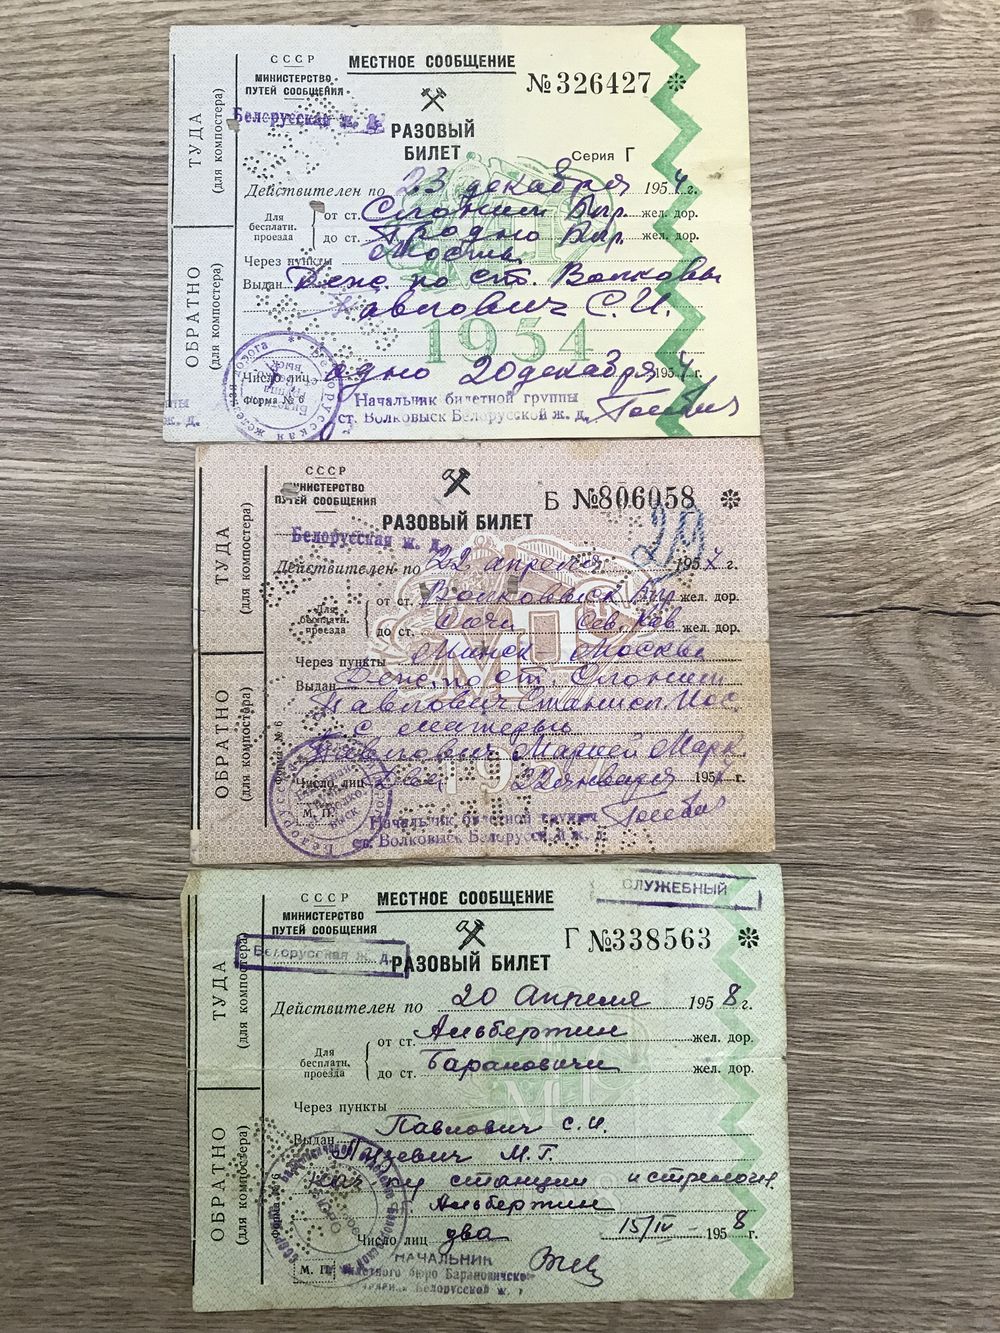 СССР
МИНИСТЕРСТВО
ПУТЕЙ СООБЩЕНИЯ
МЕСТНОЕ СООБЩЕНИЕ
№326427
Белорусская ж. д.
РАЗОВЫЙ
БИЛЕТ
Серия Г
ТУДА
(для компостера)
ОБРАТНО
(для компостера)
Действителен по 23 декабря 1954 г.
Для бесплатн. проезда
от ст. Слоним Блр. жел. дор.
до ст. Гродно Блр. жел. дор.
Через пункты Мосты
Выдан Деж. по ст. Волковы
Павлович С.И.
1954
Число лиц одно 20 декабря 1954 г.
Форма № 6
Начальник билетной группы
ст. Волковыск Белорусской ж. д.
СССР
МИНИСТЕРСТВО
ПУТЕЙ СООБЩЕНИЯ
Б №806058
РАЗОВЫЙ БИЛЕТ
29
Белорусская ж. д.
ТУДА
(для компостера)
ОБРАТНО
(для компостера)
Действителен по 22 апреля 1957 г.
Для бесплатн. проезда
от ст. Волковыск Блр жел. дор.
до ст. Сочи Сев. Кав жел. дор.
Через пункты Минск Москвы
Выдан Деж. по ст. Слоним
Павлович Станисл. Иос.
с матерью
Павлович Марией Марк.
Число лиц Два 22 января 1957 г.
Форма № 6
М. П.
Начальник билетной группы
ст. Волковыск Белорусской ж. д.
СССР
МИНИСТЕРСТВО
ПУТЕЙ СООБЩЕНИЯ
МЕСТНОЕ СООБЩЕНИЕ
СЛУЖЕБНЫЙ
Г №338563
Белорусская ж. д.
РАЗОВЫЙ БИЛЕТ
ТУДА
(для компостера)
ОБРАТНО
(для компостера)
Действителен по 20 Апреля 1958 г.
Для бесплатн. проезда
от ст. Альбертин жел. дор.
до ст. Барановичи жел. дор.
Через пункты
Выдан Павлович С.И.
М.Г.
нач-ку станции и
Альбертин
Число лиц два 15/IV 1958 г.
Форма № 6
М. П.
НАЧАЛЬНИК
билетного бюро Барановичско
Белорусской ж.